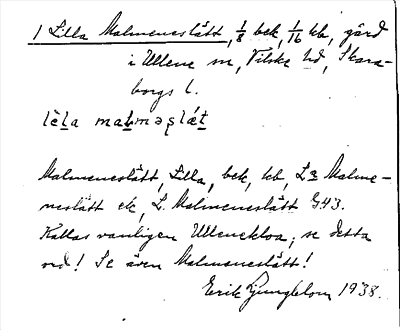 1 Lilla Malmeneslätt, 1/8 bek, 1/16 kb, gård
i Ullene sn, Vilske hd, Skara-
borgs l.
Malmeneslätt, Lilla, bek, kb, L:a Malme-
neslätt ek, L. Malmeneslätt G43.
Kallas vanligen Ulleneklva; se detta
ord! Se även Malmeneslätt!
Erik Ljungblom 1938.